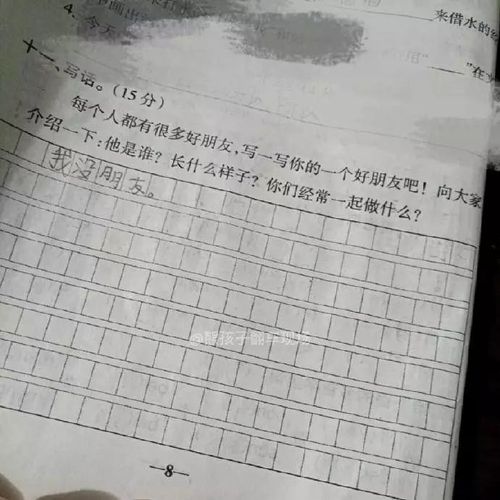 来借水的
4. 今天
“____”在
十一、写话。(15分)
每个人都有很多好朋友,写一写你的一个好朋友吧！向大家
介绍一下:他是谁？长什么样子？你们经常一起做什么？
我没朋友。
@醒孩子翻车现场
—8—